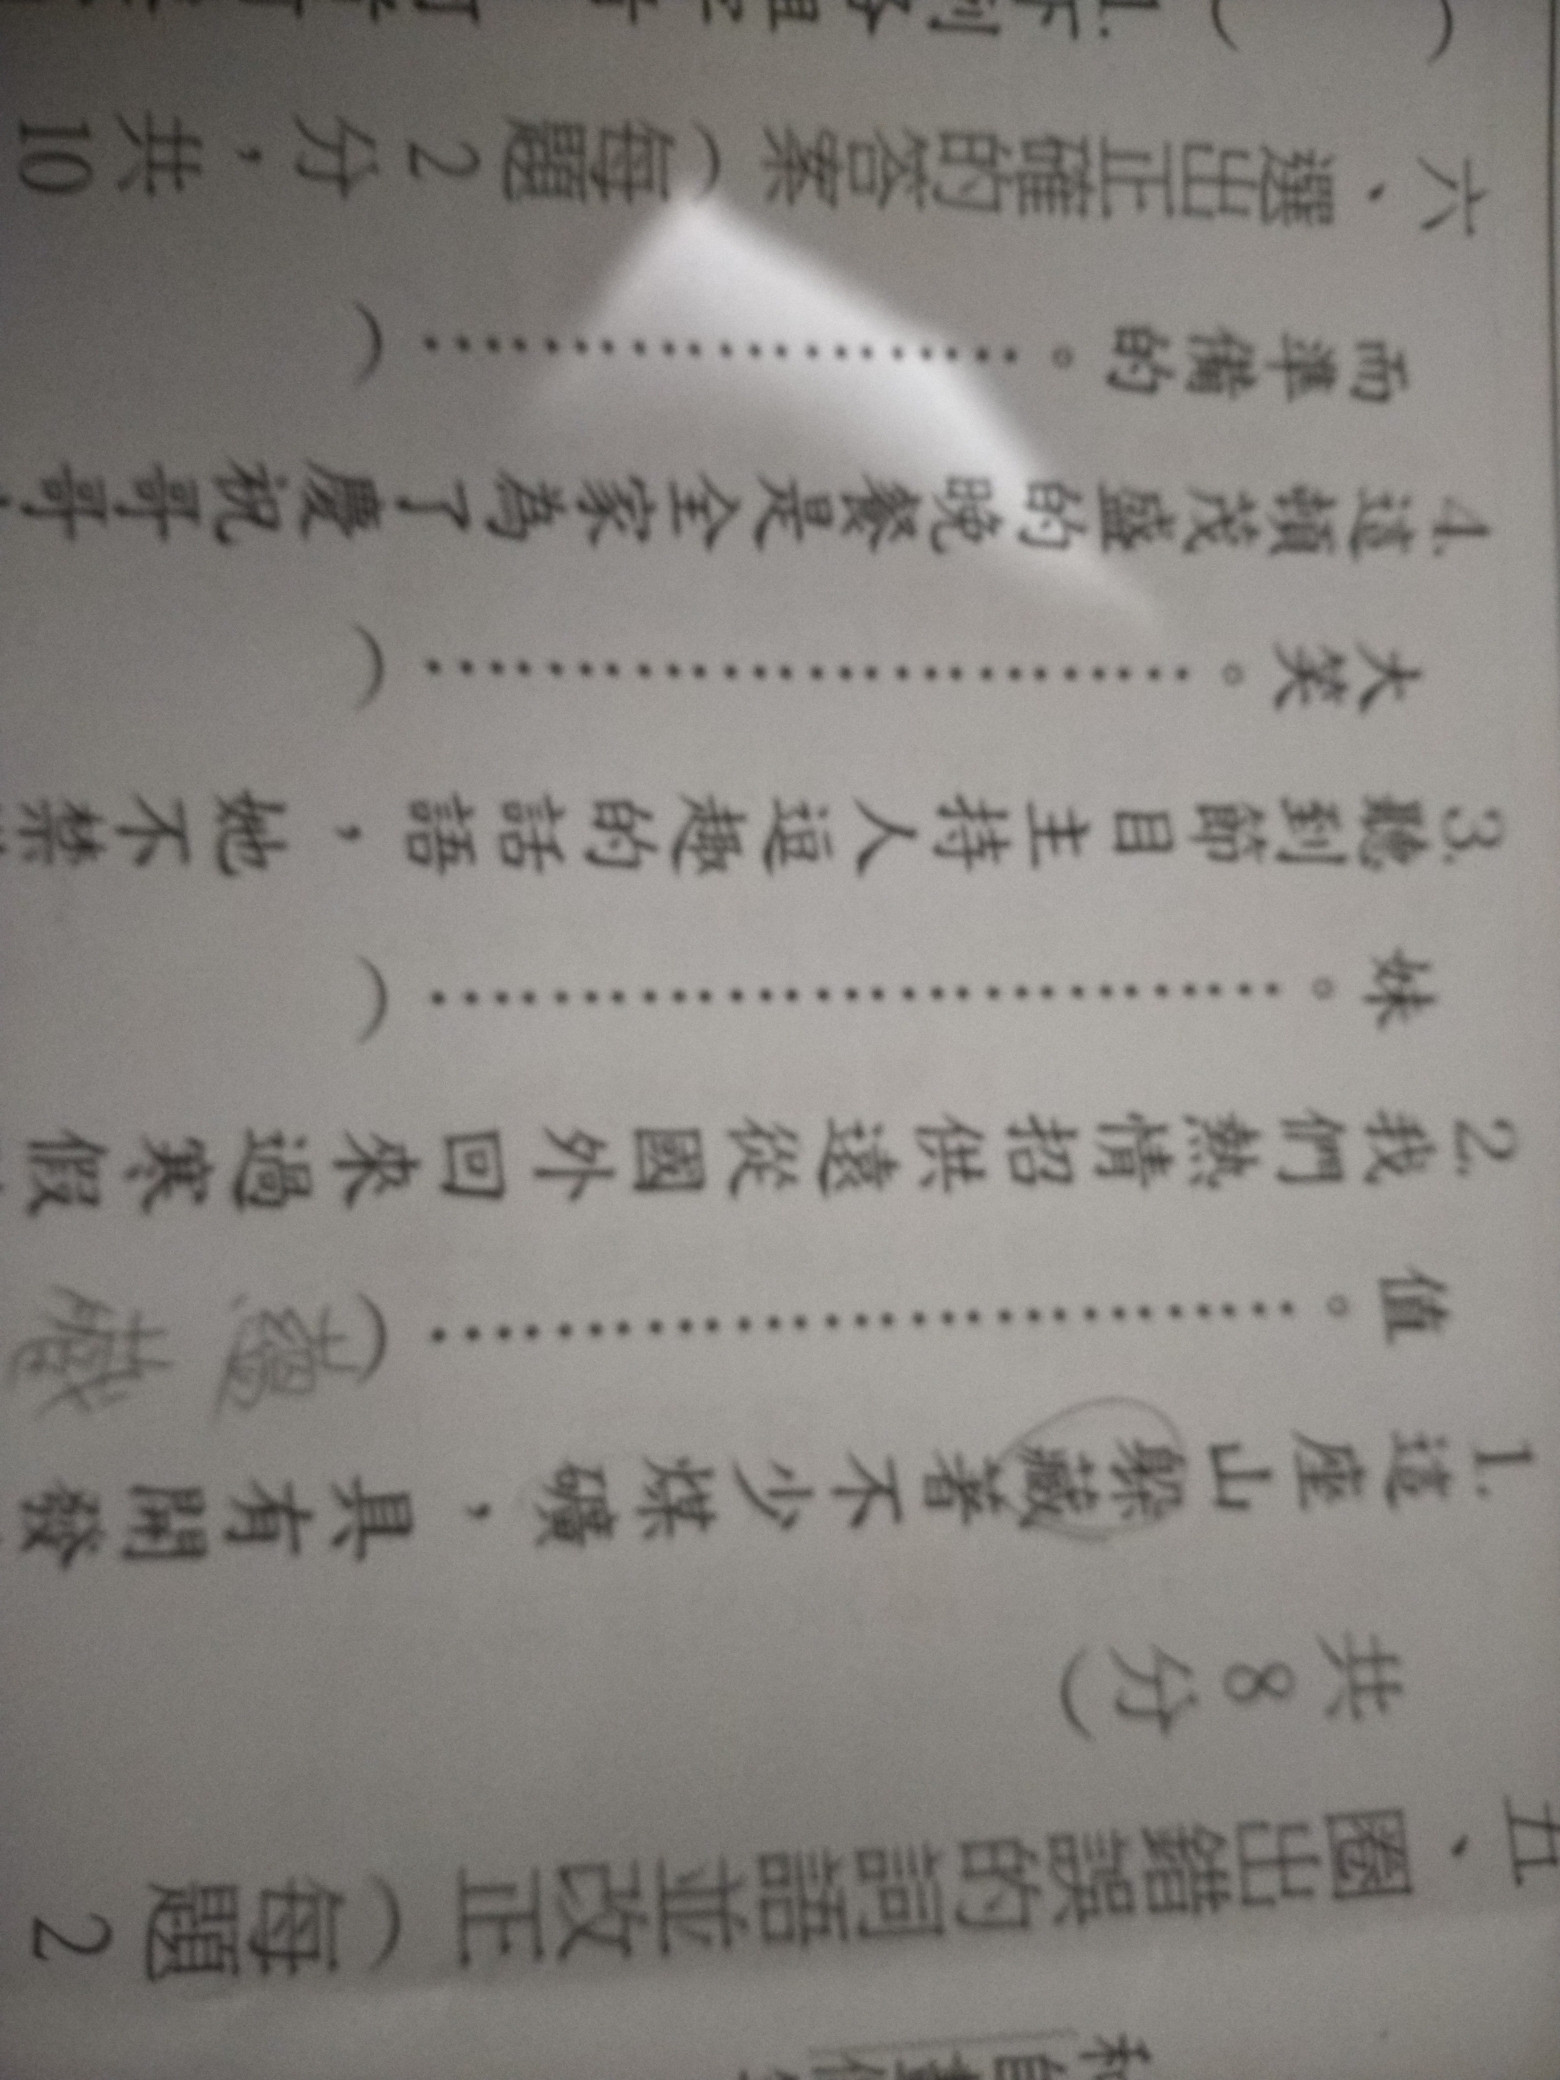 五、圈出錯誤的詞語並改正（每題2
共8分）
1. 這座山躲藏著不少煤礦，具有開發
值。…………………………（蘊藏
2. 我們熱情招供遠從外國回來過寒假
妹。…………………………（
3. 聽到節目主持人逗趣的話語，她不禁
大笑。………………………（
4. 這頓茂盛的晚餐是全家為了慶祝哥哥
而準備的。…………………（
六、選出正確的答案（每題2分，共10
（ ）1. 下列